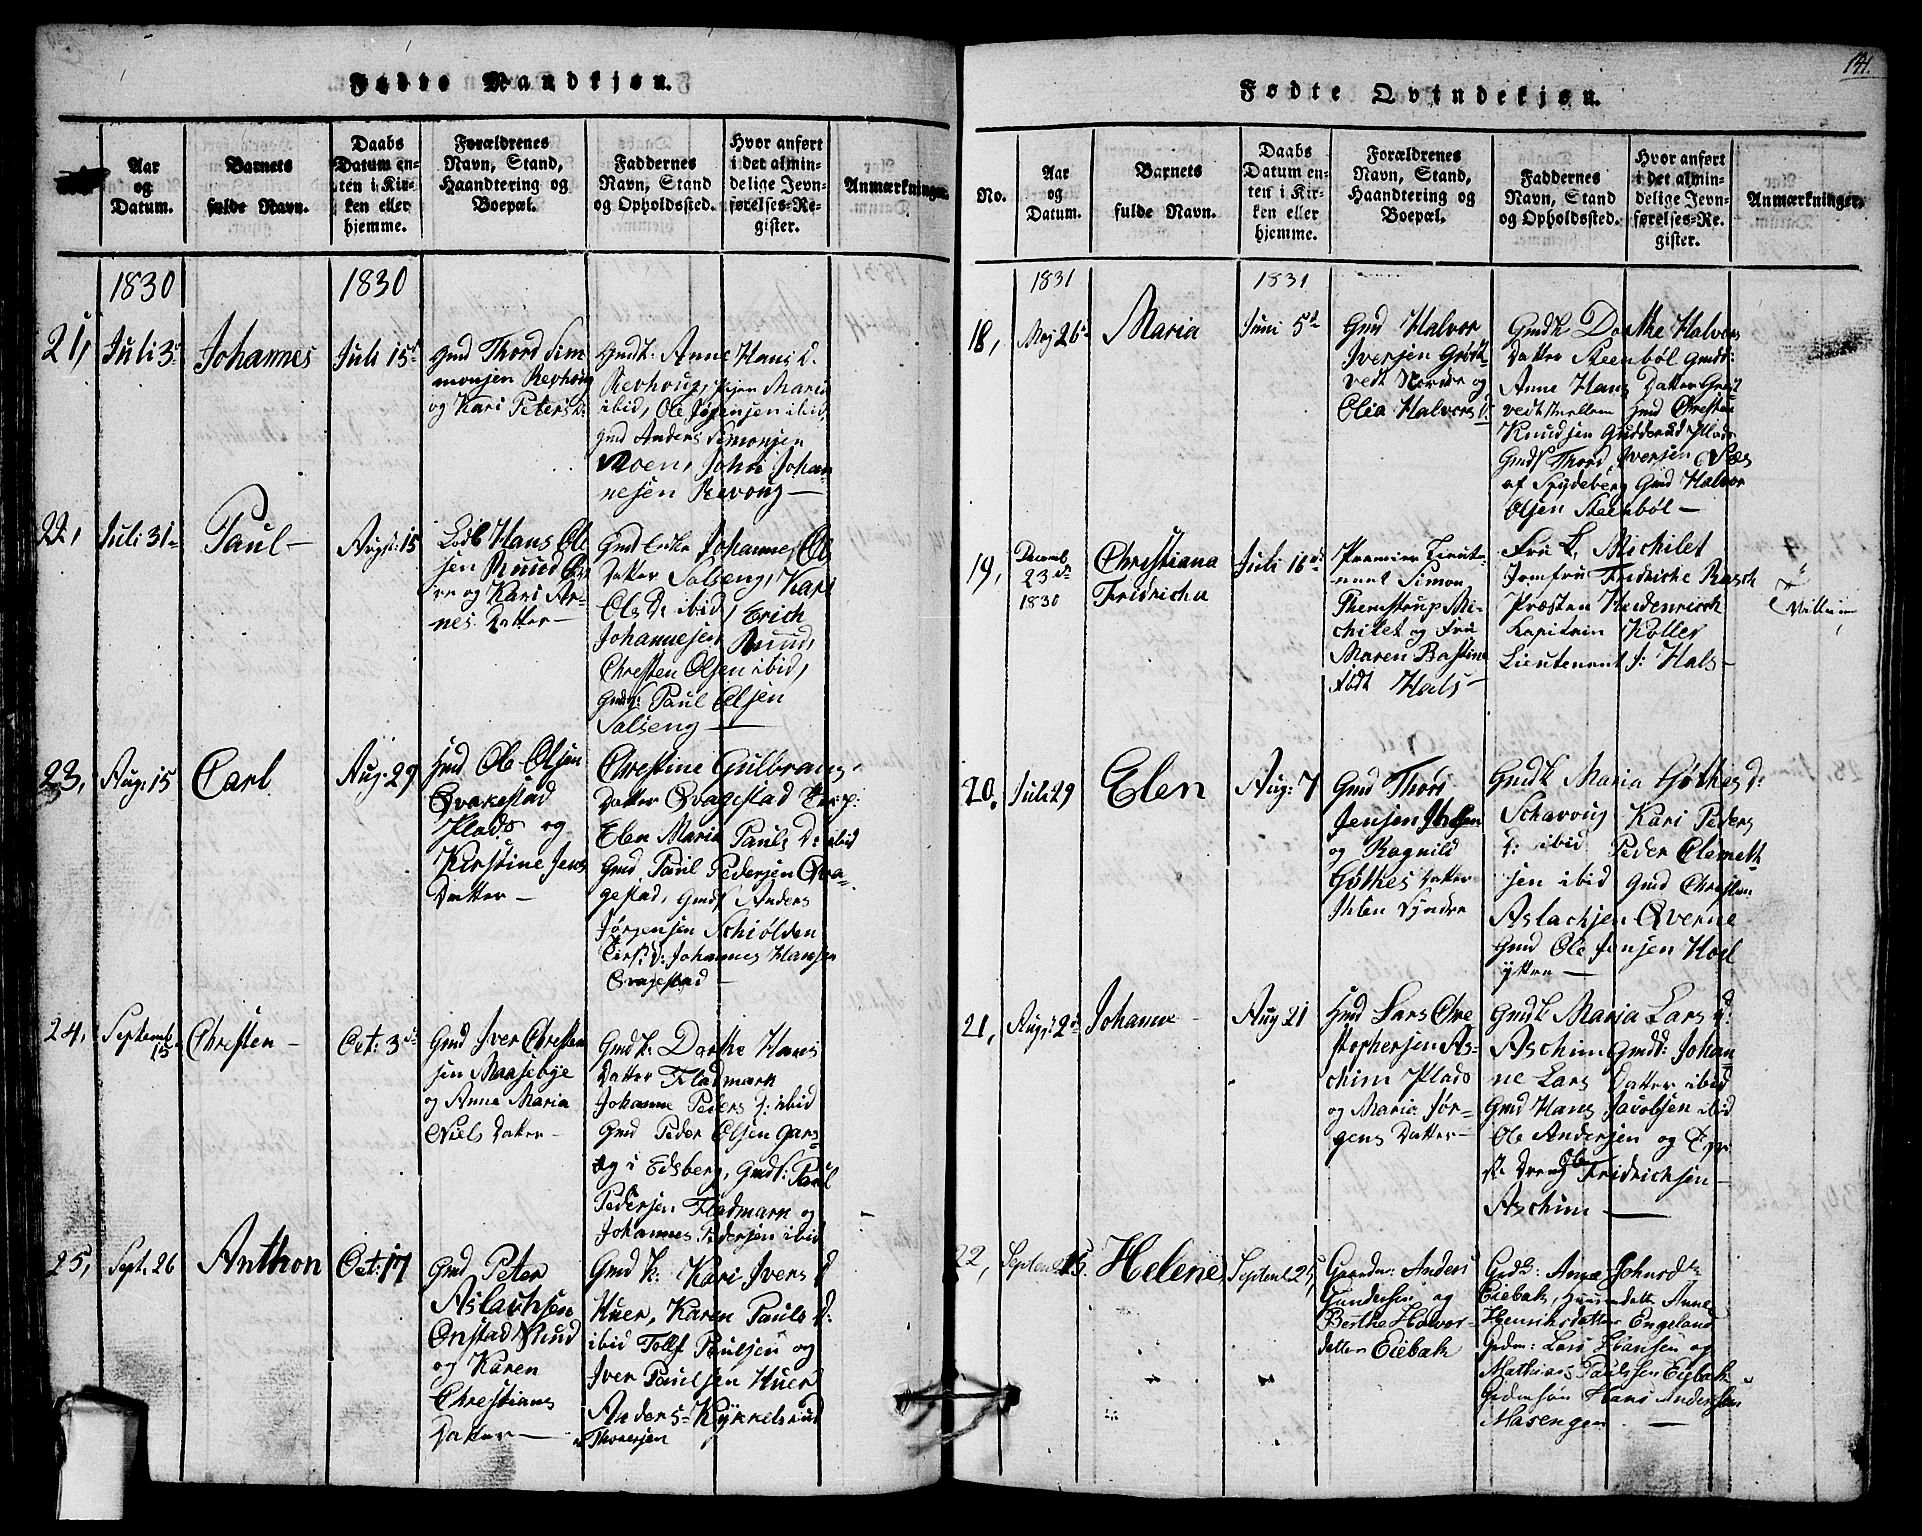 Fødte Mandkjøn.
Aar og Datum.
Barnets fulde Navn.
Daabs Datum enten i Kirken eller hjemme.
Forældrenes Navn, Stand, Haandtering og Boepæl.
Faddernes Navn, Stand og Opholdssted.
Hvor anført i det almindelige Jevnførelses-Register.
Anmærkninger.
1830
1830
21,
Juli 3
Johannes
Juli 15
Gmd Thord Sim
monsen Revhoug
og Kari Peters D:
Gmdk: Anne Hans D.
Revhoug, Maria
ibid, Ole Jensen ibid,
Gmd Anders Simonsen
Moen, Johan Johan
nesen Revoug —
22,
Juli 31
Paul —
Augst: 15
Hans Ol
sen Ruud
og Kari Ar
nes Datter —
Gmd Enke Johannes Ol
Datter Solseng, Kari
Ols D: ibid, Erich
Johannesen Ruud,
Christen Olsen ibid,
Gmds: Paul Olsen
Solseng —
23,
Aug: 15
Carl
Aug: 29
Hmd Ole Olsen
Qvakestad
Plads og
Kirstine Jens
Datter —
Christine Gulbrans
Datter Qvagestad
Elen Maria Pauls D: ibid
Gmd, Paul Pedersen Qva-
gestad, Gmds Anders
Jørgensen Schiølden
Johannes Hansen
Qvagestad —
24,
Septemb
15
Christen —
Oct: 3
Gmd Iver Christen
sen Maasebye
og Anne Maria
Niels Datter —
Gmdk: Dorthe Hans
Datter Fladmark
Johanne Peders D: ibid
Gmd Peder Olsen Gars-
og i Edsberg, Gmds: Paul
Pedersen Fladmark og
Johannes Pedersen ibid
25,
Sept. 26
Anthon
Oct: 17
Gmd Peter
Aslachsen
Onstad Ruud
og Karen
Christians
Datter —
Gmd K: Kari Ivers D
Huer, Karen Pauls D:
ibid Tollf Paulsen og
Iver Paulsen Huer
Anders Kykkelsrud
Thoresen
141.
Fødte Qvindekjøn.
No.
Aar og Datum.
Barnets fulde Navn.
Daabs Datum enten i Kirken eller hjemme.
Forældrenes Navn, Stand, Haandtering og Boepæl.
Faddernes Navn, Stand og Opholdssted.
Hvor anført i det almindelige Jevnførelses-Register.
Anmærkninger.
1831
1831
18,
Maj 26
Maria
Juni 5
Gmd Halvor
Iversen Grøt
vedt Nordre og
Elia Halvors D:
Gmdk Dorthe Halvors
Datter Steenbøl Gmdd:
Anne Hans Datter Grøt
vedt Gmd Christen
Knudsen Gudderud Plads
Gmds Thord Iversen Næs
af Spydeberg Gmd Halvor
Olsen Steenbøl —
19,
Decemb
23
1830
Christiana
Fridricha
Juli 16
Premier Lieute
nant Simon
Themstrup Mi-
chilet og Fru
Maren Bastine
født Hals —
Fru L, Michilet
Jomfru Fridriche Rasch
Præsten Heidenreich
Kapitain Koller
Lieutenant J: Hals —
20,
Juli 29
Elen
Aug: 7
Gmd Thord
Jensen Ihlen
og Ragnild
Gøthes Datter
Ihlen Syndre
Gmdk Maria Gøthes D:
Schavoug Kari Peders
D: ibid Peder Clemet
sen ibid Gmd Christen
Aslachsen Qverne
Gmd Ole Jensen Hoel
ytter —
21,
Augst 2
Johanne
Aug 21
Hmd Lars Chri
stophersen As-
chim Plads
og Maria Jør-
gens Datter —
Gmdk Maria Lars D:
Aschim Gmdd: Johan
ne Lars Datter ibid
Gmd Hans Jacobsen ibid
Ole Andersen og
Dreng Ole Fridrichsen
Aschim —
22,
Septemb 15.
Helene
Septemb 25,
Gaardm: Anders
Gundersen og
Berthe Halvor
datter Eiebak
Gdk: Anne Johnsd
Eiebak, Anne
Henriksdatter Engeland
Gdm: Lars Hansen og
Mathias Paulsen Eiebak
Gdmsøn Hans Andersen
Masengen —